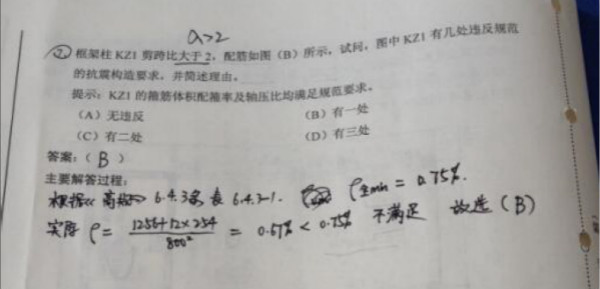 λ>2
2、框架柱 KZ1 剪跨比大于 2，配筋如图（B）所示，试问，图中 KZ1 有几处违反规范
的抗震构造要求，并简述理由。
提示：KZ1 的箍筋体积配箍率及轴压比均满足规范要求。
（A）无违反 （B）有一处
（C）有二处 （D）有三处
答案：（ B ）
主要解答过程：
根据《高规》6.4.3条 表 6.4.3-1. ρ全min = 0.75%.
实际 ρ = (1256+12×254)/800² = 0.67% < 0.75% 不满足 故选（B）